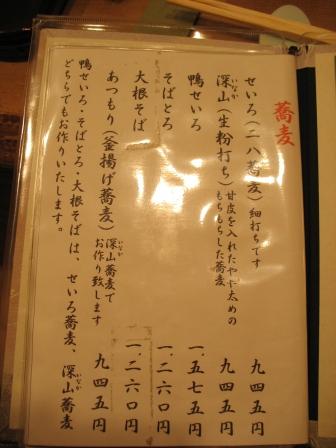 蕎麦
せいろ（二八蕎麦）細打ちです 九四五円
深山（生粉打ち）甘皮を入れたやや太めの
もちもちした蕎麦 九四五円
いなか
鴨せいろ 一、五七五円
そばとろ 一、二六〇円
大根そば 一、二六〇円
あつもり（釜揚げ蕎麦）深山蕎麦で
お作り致します 九四五円
いなか
鴨せいろ・そばとろ・大根そばは、せいろ蕎麦、深山蕎麦
いなか
どちらでもお作りいたします。